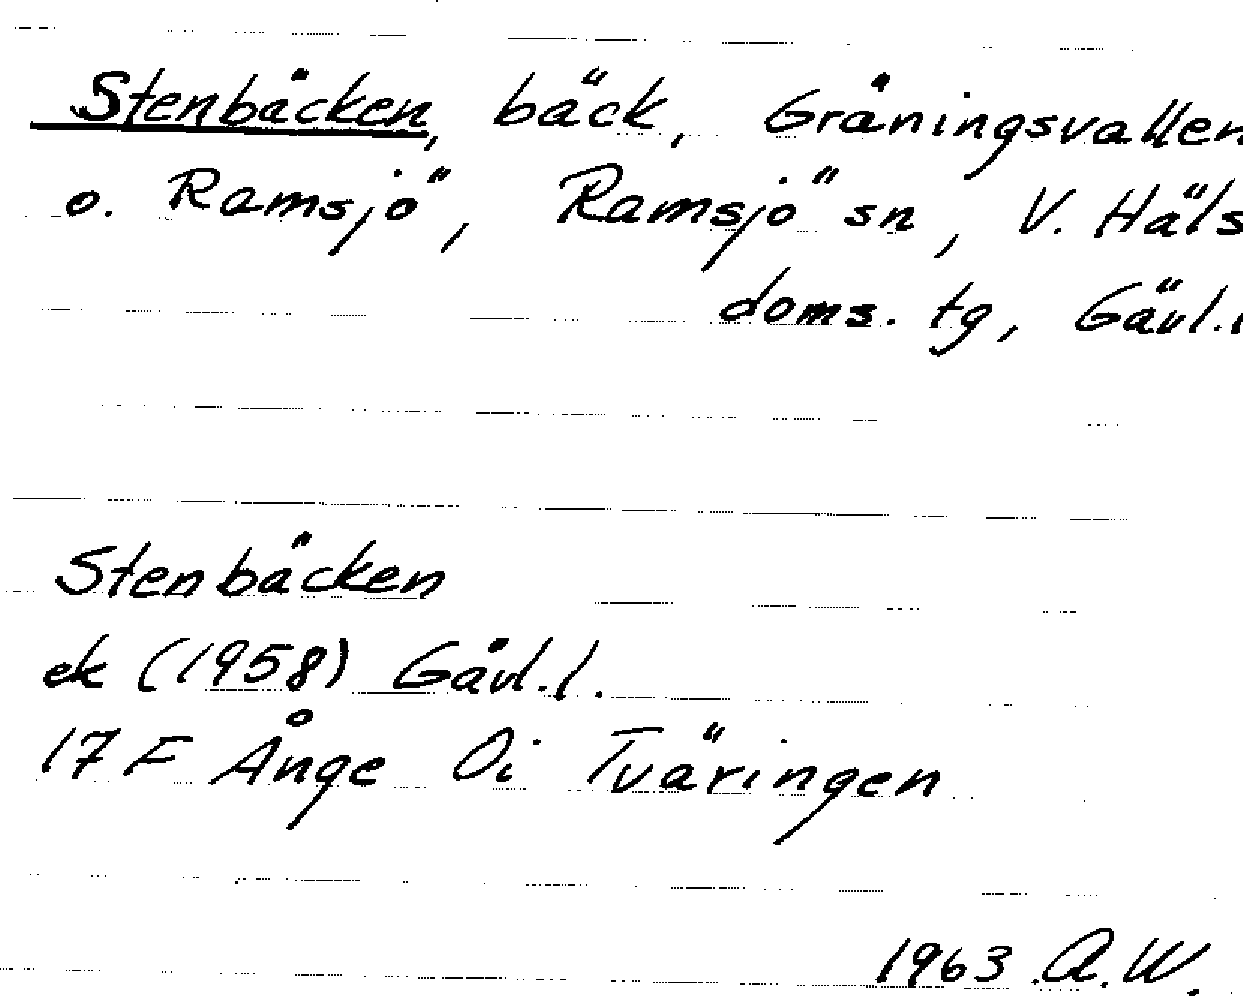 Stenbäcken, bäck, Gråningsvallen
o. Ramsjö, Ramsjö sn, V. Häls
doms. tg, Gävl.l
Stenbäcken
ek (1958) Gävl.l.
17 F Ånge Oi Tväringen
1963 A.W.